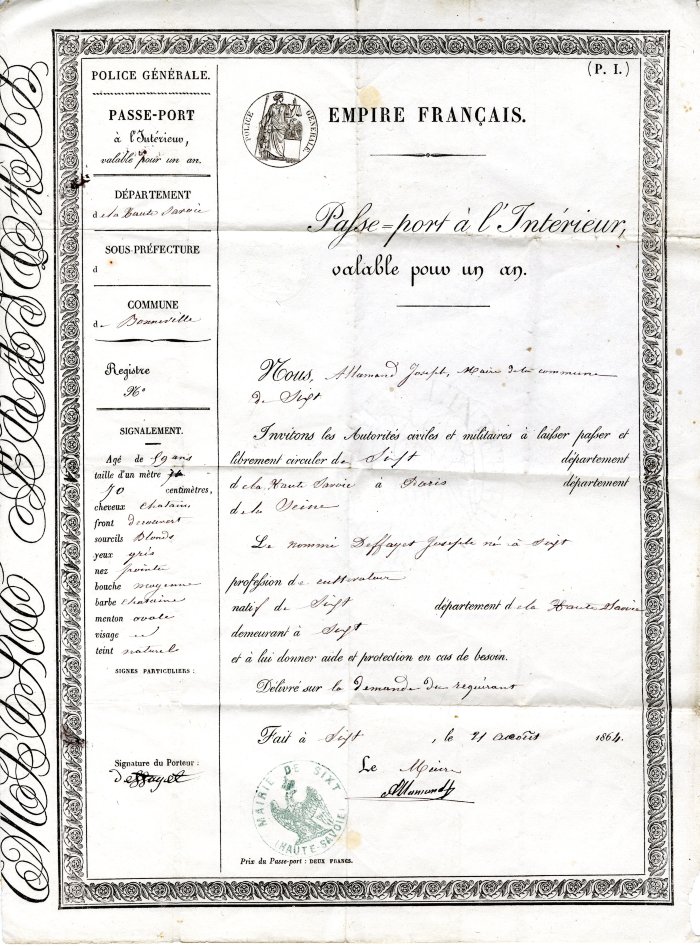 POLICE GÉNÉRALE.
PASSE-PORT
à l'Intérieur,
valable pour un an.
DÉPARTEMENT
de la Haute Savoie
SOUS-PRÉFECTURE
d
COMMUNE
de Bonneville
Registre
N.º
SIGNALEMENT.
Agé de 59 ans
taille d'un mètre
70 centimètres,
cheveux chatains
front découvert
sourcils Blonds
yeux gris
nez pointu
bouche moyenne
barbe chataine
menton ovale
visage id
teint naturel
SIGNES PARTICULIERS :
Signature du Porteur :
deffayet
(P. I.)
POLICE GÉNÉRALE.
EMPIRE FRANÇAIS.
Passe=port à l'Intérieur,
valable pour un an.
Nous, Allamand Joseph, Maire de la commune
de Sixt
Invitons les Autorités civiles et militaires à laisser passer et
librement circuler de Sixt département
de la Haute Savoie à Paris département
de la Seine
Le nommé Deffayet Joseph né à Sixt
profession de cultivateur
natif de Sixt département de la Haute Savoie
demeurant à Sixt
et à lui donner aide et protection en cas de besoin.
Délivré sur la demande du requérant
Fait à Sixt, le 21 août 1864.
Le Maire
Allamand
MAIRIE DE SIXT
(HAUTE-SAVOIE)
Prix du Passe-port : DEUX FRANCS.